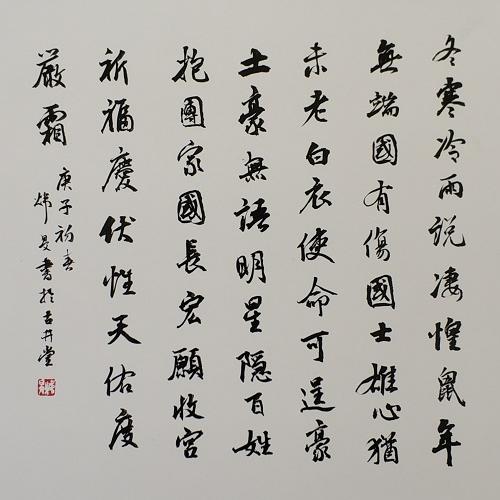 冬寒冷雨説凄惶鼠年
無端國有傷國士雄心猶
未老白衣使命可逞豪
土豪無語明星隐百姓
抱團家國長宏願收官
祈福慶伏惟天佑度
嚴霜
庚子初春
煒旻書於吉井堂